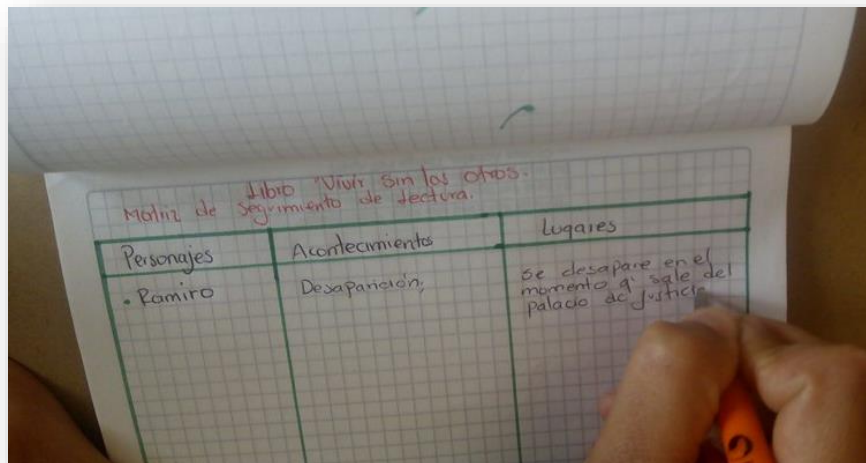 Libro "Vivir sin los otros.
Matriz de seguimiento de lectura.
Personajes
Acontecimientos
Lugares
• Ramiro
Desaparición;
se desapare en el
momento q' sale del
palacio de justicia